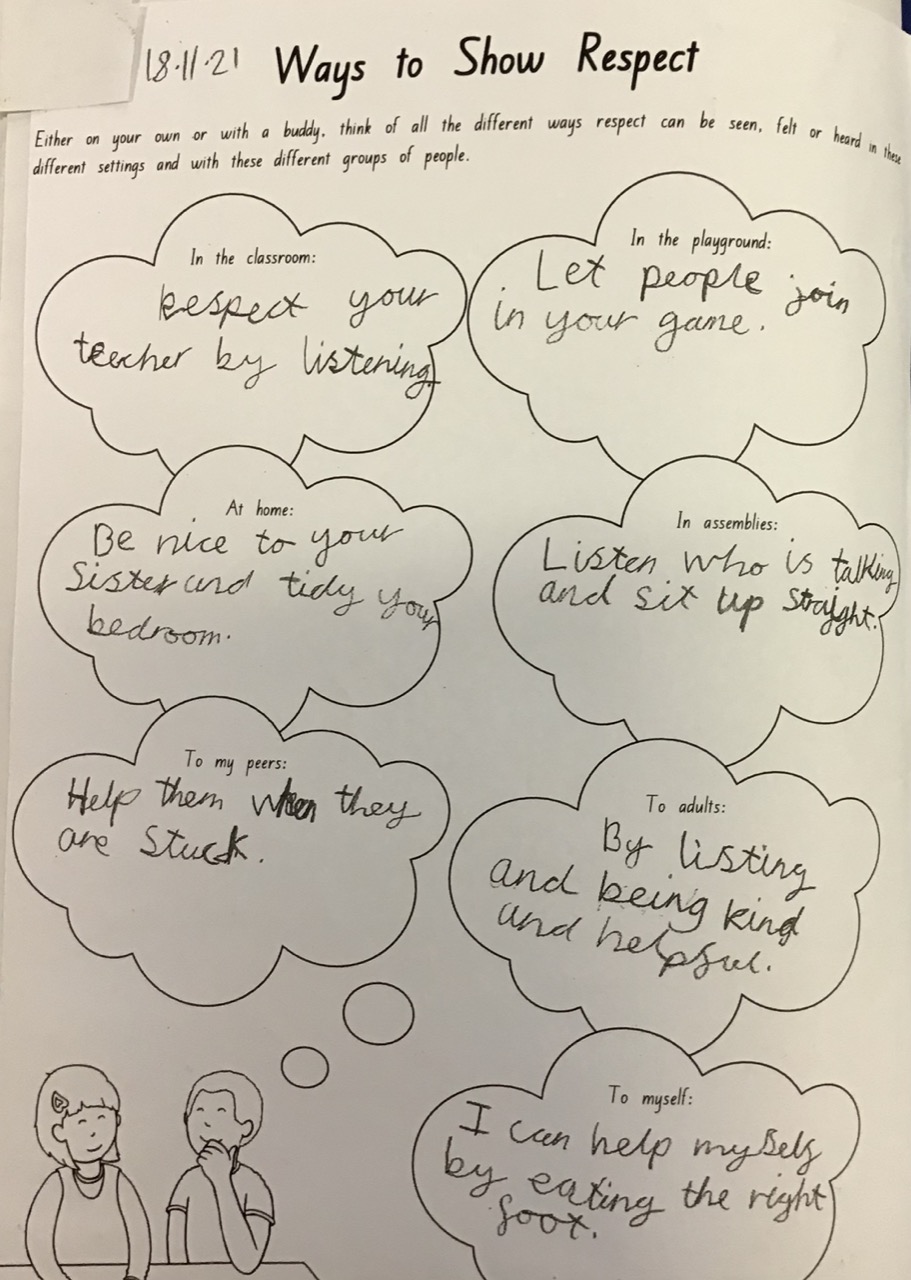 18.11.21 Ways to Show Respect
Either on your own or with a buddy, think of all the different ways respect can be seen, felt or heard in these
different settings and with these different groups of people.
In the classroom:
Respect your
teecher by listening.
In the playground:
Let people join
in your game.
At home:
Be nice to your
Sister and tidy your
bedroom.
In assemblies:
Listen who is talking
and sit up straight.
To my peers:
Help them when they
are stuck.
To adults:
By listing
and being kind
and helpful.
To myself:
I can help myself
by eating the right
foot.